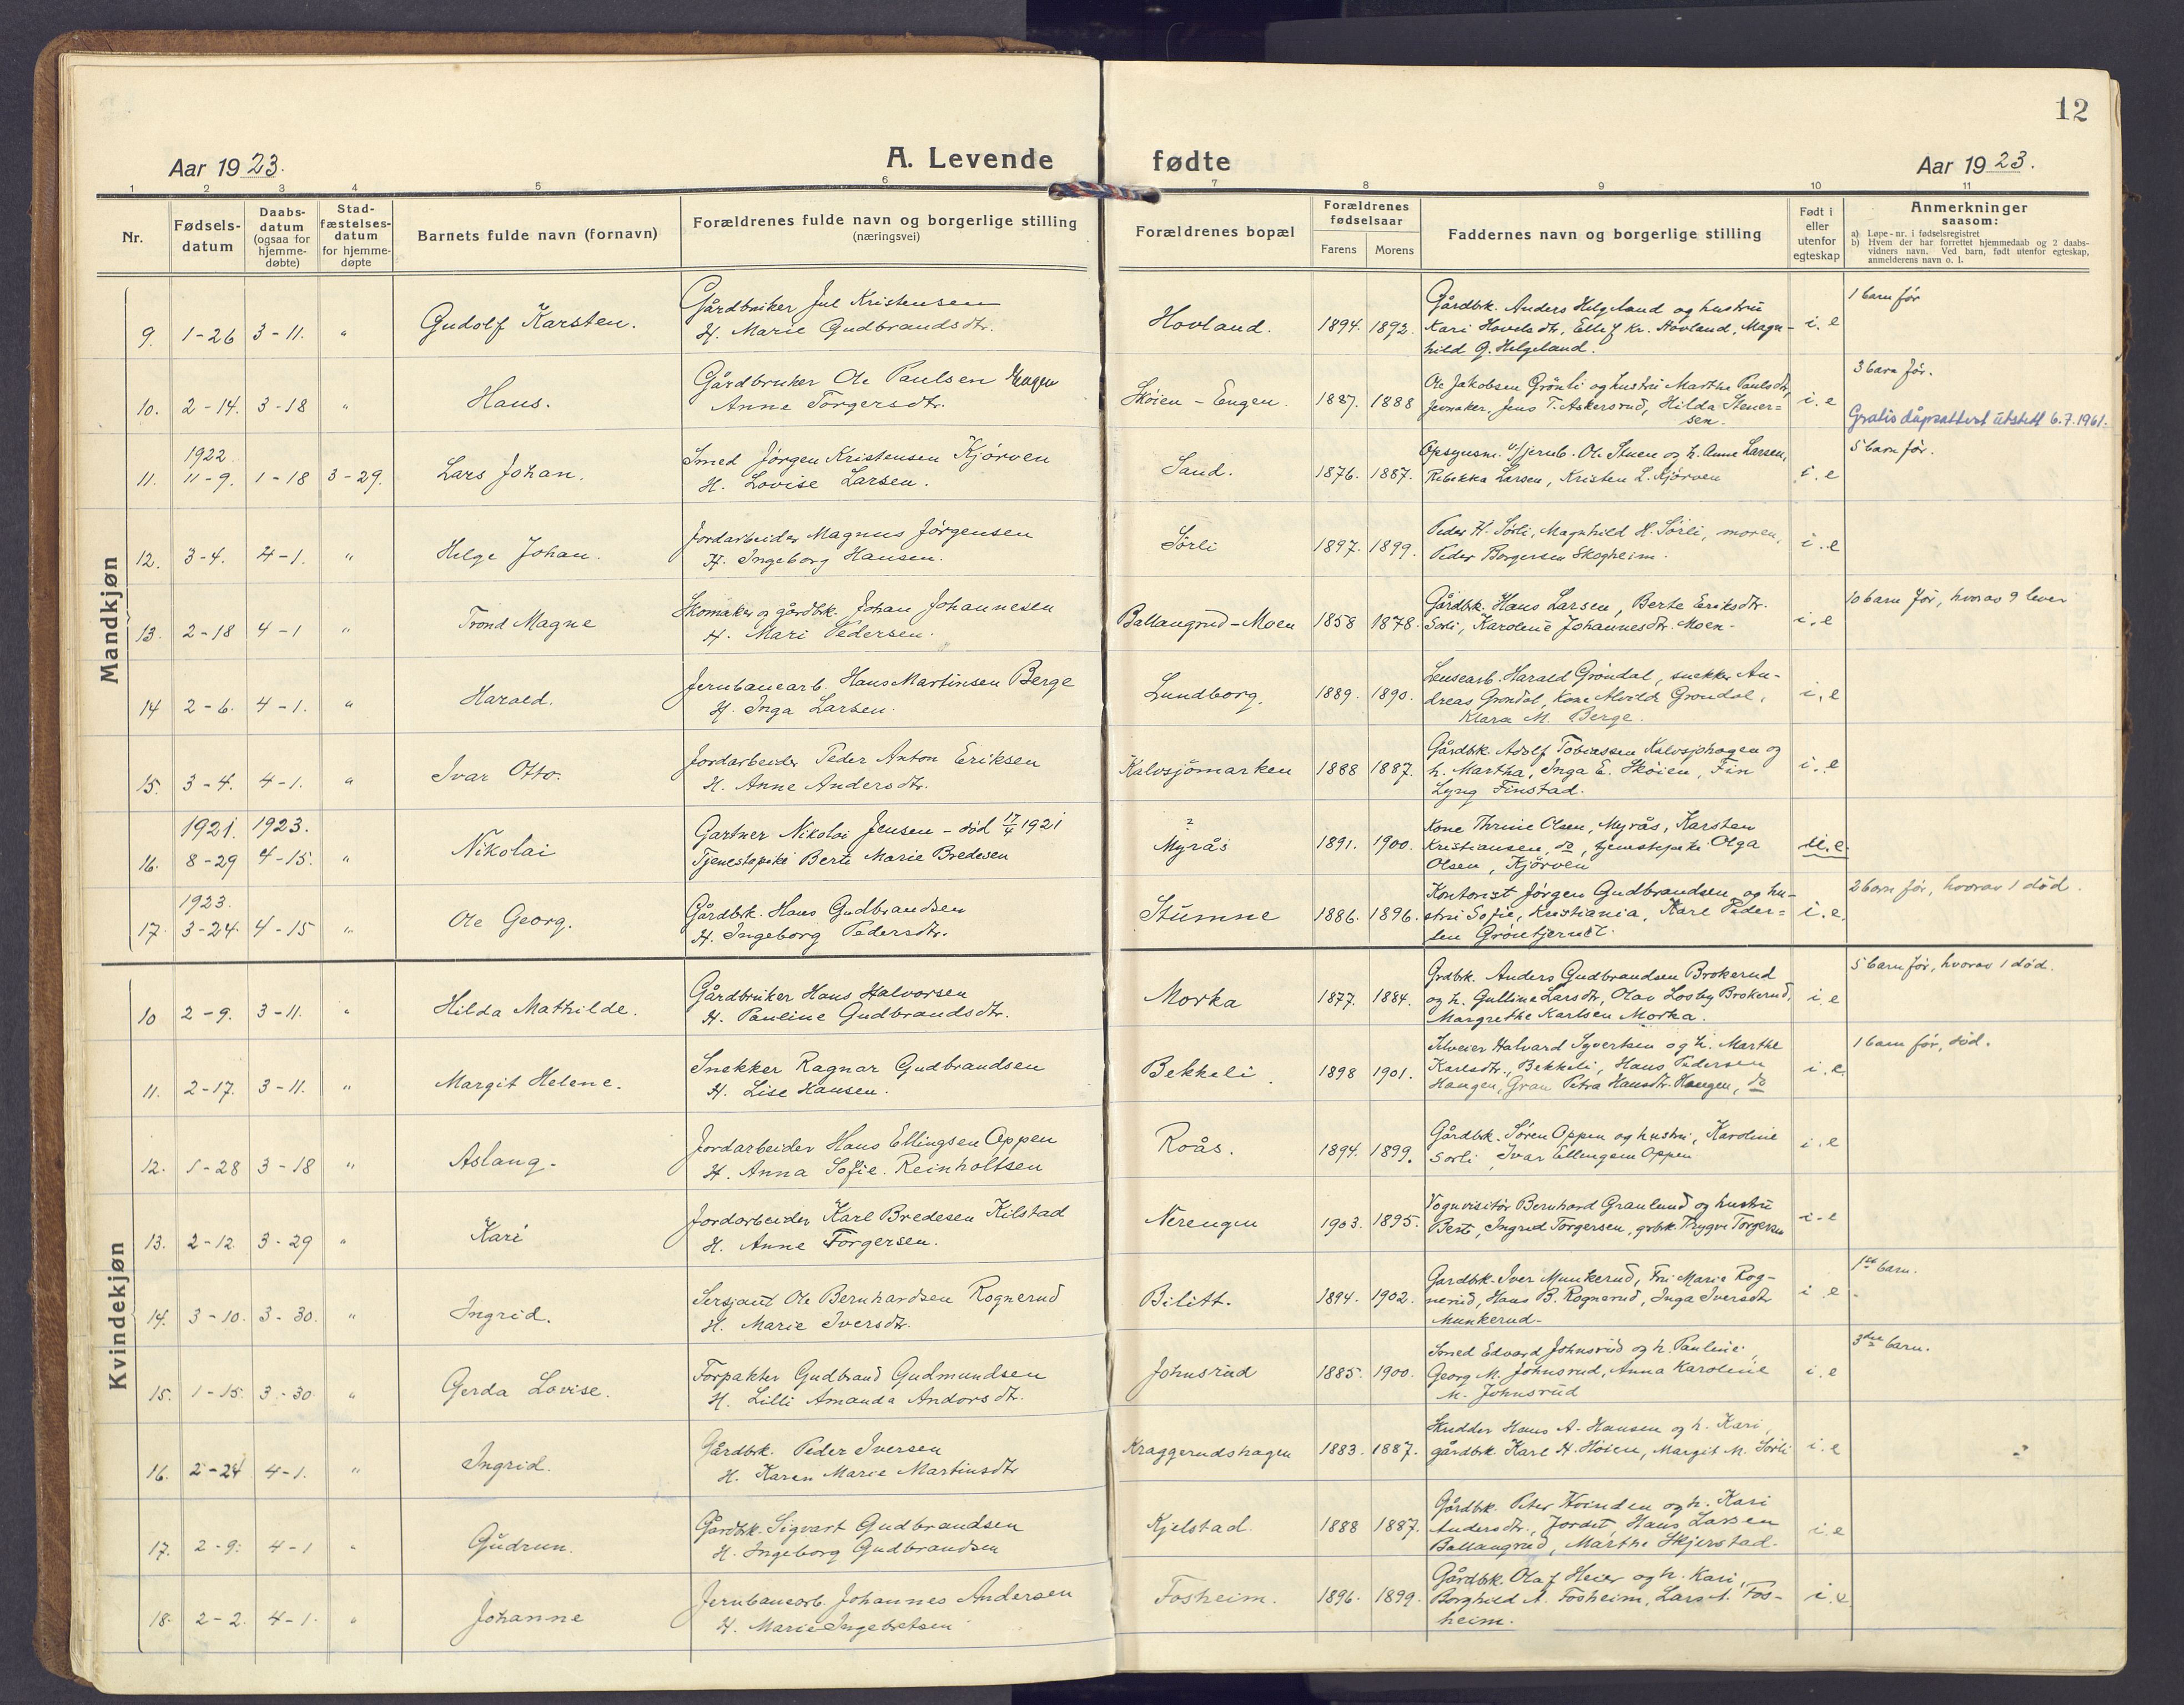 12
Aar 1923.
A. Levende fødte
Aar 1923.
1 2 3 4 5 6 7 8 9 10 11
Nr.
Fødsels-
datum
Daabs-
datum
(ogsaa for
hjemme-
døbte)
Stad-
fæstelses-
datum
for hjemme-
døpte
Barnets fulde navn (fornavn)
Forældrenes fulde navn og borgerlige stilling
(næringsvei)
Forældrenes bopæl
Forældrenes
fødselsaar
Farens Morens
Faddernes navn og borgerlige stilling
Født i
eller
utenfor
egteskap
Anmerkninger
saasom:
a) Løpe-nr. i fødselsregistret
b) Hvem der har forrettet hjemmedaab og 2 daabs-
vidners navn. Ved barn, født utenfor egteskap,
anmelderens navn o. l.
Mandkjøn
9. 1-26 3-11. " Gudolf Karsten.
Gårdbruker Jul Kristensen
H. Marie Gudbrandsdtr.
Hovland. 1894. 1892.
Gårdbk. Anders Helgeland og hustru
Kari Hovelsdtr, Ellef Kr. Hovland, Magn-
hild G. Helgeland.
i. e
1 barn før
10. 2-14. 3-18 " Hans.
Gårdbruker Ole Paulsen Engen
Anne Torgersdtr.
Skøien - Engen. 1887. 1888
Ole Jakobsen Grønli og hustru Marthe Paulsdtr,
Jevnaker, Jens T. Askersrud, Hilda Stener=
sen.
i. e
3 barn før.
Gratis dåpsattest utstedt 6.7.1961.
1922
11. 11-9. 1-18 3-29. Lars Johan.
Smed Jørgen Kristensen Kjørven
H. Lovise Larsen.
Sand. 1876. 1887.
Opsynsm. v/jernb. Ole Stuen og h. Anne Larsen,
Rebekka Larsen, Kristen L. Kjørven
i. e
5 barn før.
12. 3-4. 4-1. " Helge Johan.
Jordarbeider Magnus Jørgensen
H. Ingeborg Hansen.
Sørli 1897. 1899.
Peder H. Sørli, Magnhild H. Sørli, moren,
Peder Borgersen Skogheim.
i. e
13. 2-18 4-1 " Trond Magne
Skomaker og gårdbk. Johan Johannesen
H. Mari Pedersen.
Ballangrud-Moen 1858 1878.
Gårdbk. Hans Larsen, Berte Eriksdtr.
Sørli, Karoline Johannesdtr. Moen-
i. e
10 barn før, hvorav 9 lever
14 2-6. 4-1. " Harald.
Jernbanearb. Hans Martinsen Berge
H. Inga Larsen.
Lundborg. 1889. 1890.
Lensearb. Harald Grøndal, snekker An-
dreas Grøndal, Kone Grøndal,
Klara M. Berge.
i. e
15. 3-4. 4-1. " Ivar Otto.
Jordarbeider Peder Anton Eriksen
H. Anne Andersdtr.
Kalvsjømarken 1888 1887.
Gårdbk. Adolf Tobiassen Kalvsjøhagen og
h. Martha, Inga E. Skøien, Fin
Lyng Finstad.
i. e
1921. 1923.
16. 8-29 4-15. " Nikolai
Gartner Nikolai Jensen - død 17/4 1921
Tjenestepike Berte Marie Bredesen
?
Myrås 1891. 1900.
Kone Thrine Olsen, Myrås, Karsten
Kristiansen, do, tjenestepike Olga
Olsen, Kjørven
u. e.
1923.
17. 3-24. 4-15 " Ole Georg.
Gårdbk. Hans Gudbrandsen
H. Ingeborg Pedersdtr.
Stumne 1886. 1896.
Kontorist Jørgen Gudbrandsen og hu-
stru Sofie, Kristiania, Karl Peder=
sen Grøntjernet.
i. e.
2 barn før, hvorav 1 død.
Kvindekjøn
10 2-9. 3-11. " Hilda Mathilde.
Gårdbruker Hans Halvorsen
H. Pauline Gudbrandsdtr.
Morka 1877. 1884.
Grdbk. Anders Gudbrandsen Brokerud
og h. Gulline Larsdtr, Olav Losby Brokerud,
Margrethe Karlsen Morka.
i. e
5 barn før, hvorav 1 død.
11. 2-17. 3-11. " Margit Helene.
Snekker Ragnar Gudbrandsen
H. Lise Hansen.
Bekkeli. 1898 1901.
Halvard Syvertsen og h. Marthe
Karlsdtr., Bekkeli, Hans Pedersen
Haugen, Gran Petra Hansdtr. Haugen, do
i. e.
1 barn før, død.
12. 1-28 3-18 " Aslaug.
Jordarbeider Hans Ellingsen Oppen
H. Anna Sofie Reinholtsen
Roås. 1894. 1899.
Gårdbk. Søren Oppen og hustru, Karoline
Sørli, Ivar Ellingsen Oppen
i. e
13. 2-12. 3-29 " Kari
Jordarbeider Karl Bredesen Kilstad
H. Anne Torgersen.
Nerengen 1903. 1895.
Vognvisitør Bernhard Granlund og hustru
Berte, Ingrid Torgersen, grbk. Trygve Torgersen
i. e
14. 3-10. 3-30. " Ingrid.
Sersjant Ole Bernhardsen Rognerud
H. Marie Iversdtr.
Bilitt. 1894. 1902.
Gardbk. Iver Munkerud, Fru Marie Rog-
nerud, Hans B. Rognerud, Inga Iversdtr
Munkerud-
i. e.
1ste barn.
15. 1-15. 3-30. " Gerda Lovise.
Forpakter Gudbrand Gudmundsen
H. Lilli Amanda Andorsdtr.
Johnsrud 1885. 1900.
Smed Edvard Johnsrud og h. Pauline,
Georg M. Johnsrud, Anna Karoline
M. Johnsrud
i. e
3dje barn.
16. 2-24 4-1. " Ingrid.
Gårdbk. Peder Iversen
H. Karen Marie Martinsdtr
Kraggerudshagen 1883. 1887.
Skredder Hans A. Hansen og h. Kari,
gårdbk. Karl H. Høien, Margit M. Sørli
i. e
17. 2-9. 4-1 " Gudrun.
Gårdbk. Sigvart Gudbrandsen
H. Ingeborg Gudbrandsen
Kjelstad. 1888 1887.
Gårdbk. Peter Hvinden og h. Kari
Andersdtr., Jordet, Hans Larsen
Ballangrud, Marthe Skjerstad.
i. e
18. 2-2. 4-1. " Johanne
Jernbanearb. Johannes Andersen
H. Marie Ingebretsen
Fosheim. 1896. 1899.
Gårdbk. Olaf Heier og h. Kari,
Borghild A. Fosheim, Lars A. Fos-
heim.
i. e